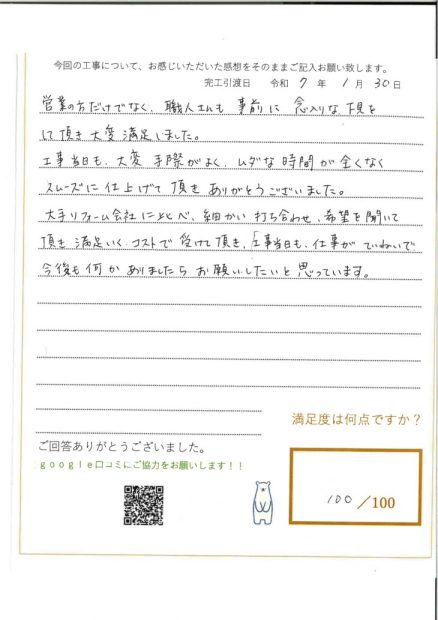 今回の工事について、お感じいただいた感想をそのままご記入お願い致します。
完工引渡日 令和 7 年 1 月 30 日
営業の方だけでなく、職人さんも 事前に 念入りな下見を
して頂き 大変 満足しました。
工事当日も、大変 手際がよく、ムダな時間が全くなく
スムーズに 仕上げて 頂き ありがとうございました。
大手リフォーム会社に比べ、細かい打ち合わせ、希望を聞いて
頂き 満足いくコストで 受けて頂き、工事当日も、仕事が ていねいで
今後も何か ありましたら お願いしたいと思っています。
満足度は何点ですか？
ご回答ありがとうございました。
google口コミにご協力をお願いします！！
100 ／100